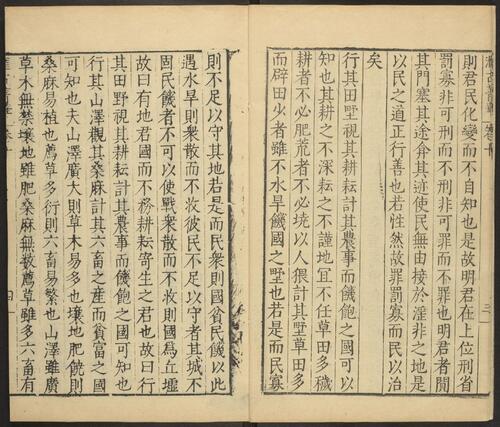 則君民化變而不自知也是故明君在上位刑省
罰寡非可刑而不刑非可罪而不罪也明君者閉
其門塞其途弇其迹使民無由接於淫非之地是
以民之道正行善也若性然故罪罰寡而民以治
矣
行其田墅視其耕耘計其農事而饑飽之國可以
知也其耕之不深耘之不謹地宜不任草田多穢
耕者不必肥荒者不必墝以人猥計其墅草田多
而辟田少者雖不水旱饑國之墅也若是而民寡
則不足以守其地若是而民衆則國貧民饑以此
遇水旱則衆散而不收彼民不足以守者其城不
固民饑者不可以使戰衆散而不收則國為丘墟
故曰有地君國而不務耕耘寄生之君也故曰行
其田野視其耕耘計其農事而饑飽之國可知也
行其山澤觀其桑麻計其六畜之産而貧富之國
可知也夫山澤廣大則草木易多也壤地肥饒則
桑麻易植也薦草多衍則六畜易繁也山澤雖廣
草木無禁壤地雖肥桑麻無數薦草雖多六畜有